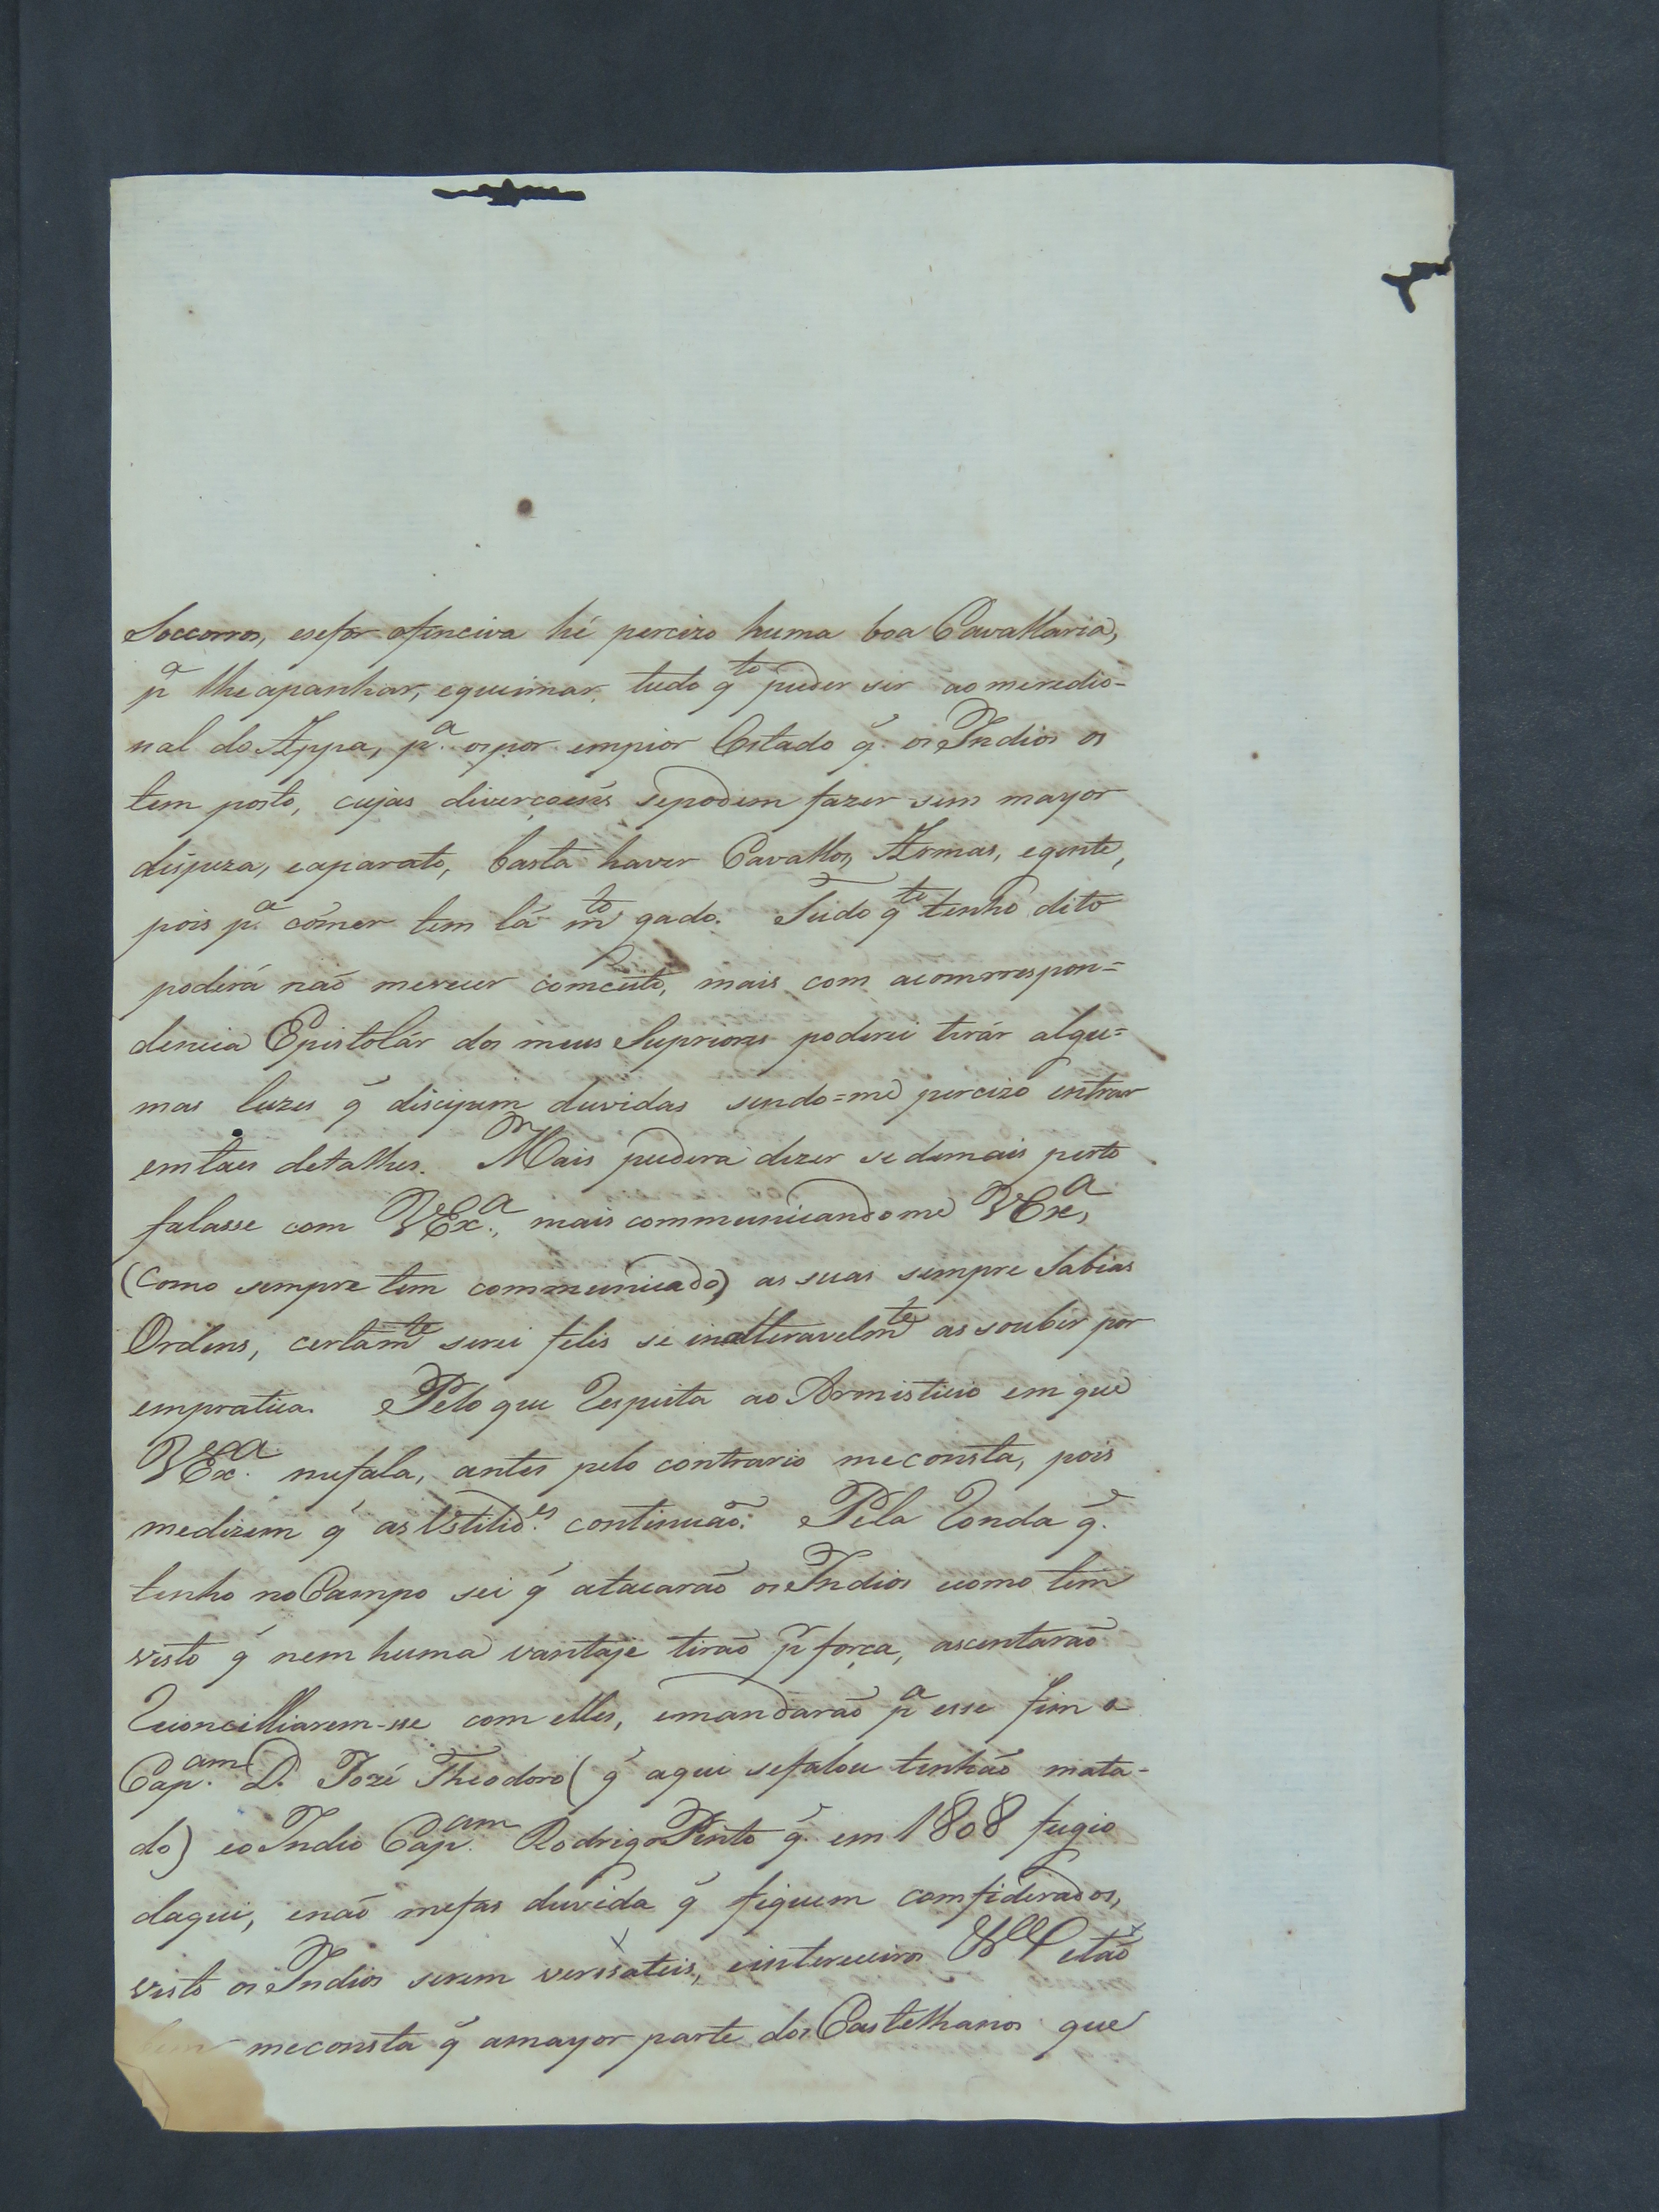 Soccorros, esefor ofenciva hé percizo huma boa Cavallaria,
pª lhe apanhar, equeimar, tudo qto puder ser ao meredio-
nal do Appa, pª. os por empior Estado q̃. os Indios os
tem posto, cujas diverçoens sepodem fazer sem mayor
despeza, eaparato, basta haver Cavallos, Armas, egente,
pois pª. comer tem lá mto gado. Tudo qto tenho dito
poderá não merecer comceito, mais com acomrrespon=
dencia Epistolár dos meus Supriores poderei tirár algu=
mas luzes q̃ discipem duvidas sendo=me percizo entrar
emtaes detalhes. Mais pudera dizer se demais perto
falasse com VExª., mais communicandome VExª,
(como sempre tem communicado) as suas sempre Sabias
Ordens, certamte serei felis se inalteravelmte as souber pôr
empratica. Pelo que Respeita ao Armisticio em que
VExª. mefala, antes pelo contrario meconsta, pois
medizem q̃ as Ostilides. continuão. Pela Ronda q̃.
tenho no Campo sei q̃ atacarão os Indios ecomo tem
visto q̃ nem huma vantaje tirão pr força, ascentarão
Reconcilliarem-sse com elles, emandarão pª esse fim o
Capam. D. Jozé Theodoro (q̃ aqui sefalou tenhão mata-
do) eo Indio Capam. Rodrigo Pinto q̃. em 1808 fugio
daqui, enão mefas duvida q̃ fiquem comfiderados,
visto os Indios serem verssateis, einterceiros
meconsta q̃ amayor parte dos Castelhanos que